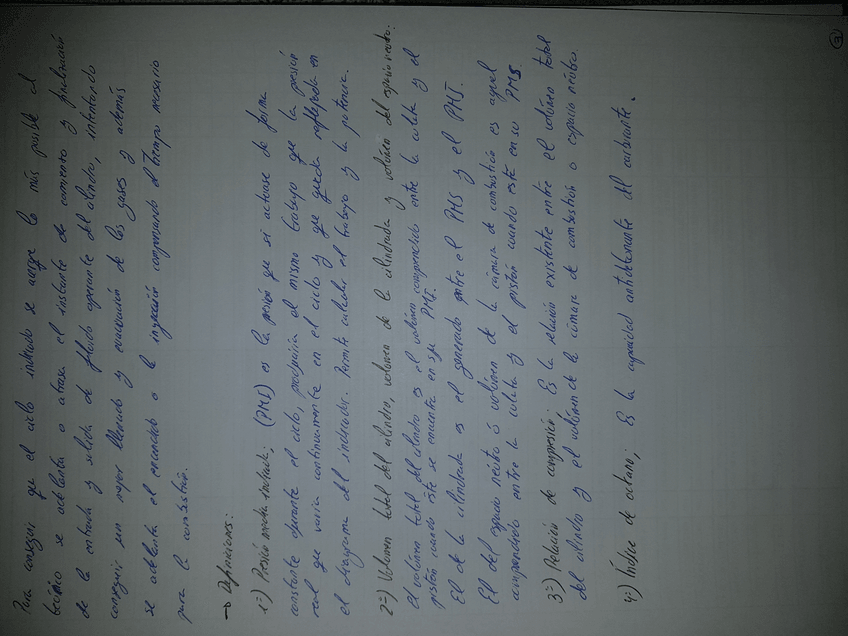 3
Para conseguir que el ciclo indicado se acerque lo más posible al
teórico se adelanta o atrasa el instante de comienzo y finalización
de la entrada y salida de fluido operante del cilindro, intentando
conseguir un mejor llenado y evacuación de los gases y además
se adelanta el encendido o la inyección compensando el tiempo necesario
para la combustión.
→ Definiciones:
1º) Presión media indicada; (PMI) es la presión que si actuase de forma
constante durante el ciclo, produciría el mismo trabajo que la presión
real que varía continuamente en el ciclo y que queda reflejada en
el diagrama del indicador. Permite calcular el trabajo y la potencia.
2º) Volumen total del cilindro, volumen de la cilindrada y volumen del espacio neutro:
El volumen total del cilindro es el volumen comprendido entre la culata y el
pistón cuando éste se encuentra en su PMI.
El de la cilindrada es el generado entre el PMS y el PMI.
El del espacio neutro ó volumen de la cámara de combustión es aquel
comprendido entre la culata y el pistón cuando esté en su PMS.
3º) Relación de compresión: Es la relación existente entre el volumen total
del cilindro y el volumen de la cámara de combustión o espacio neutro.
4º) Índice de octano; Es la capacidad antidetonante del carburante.